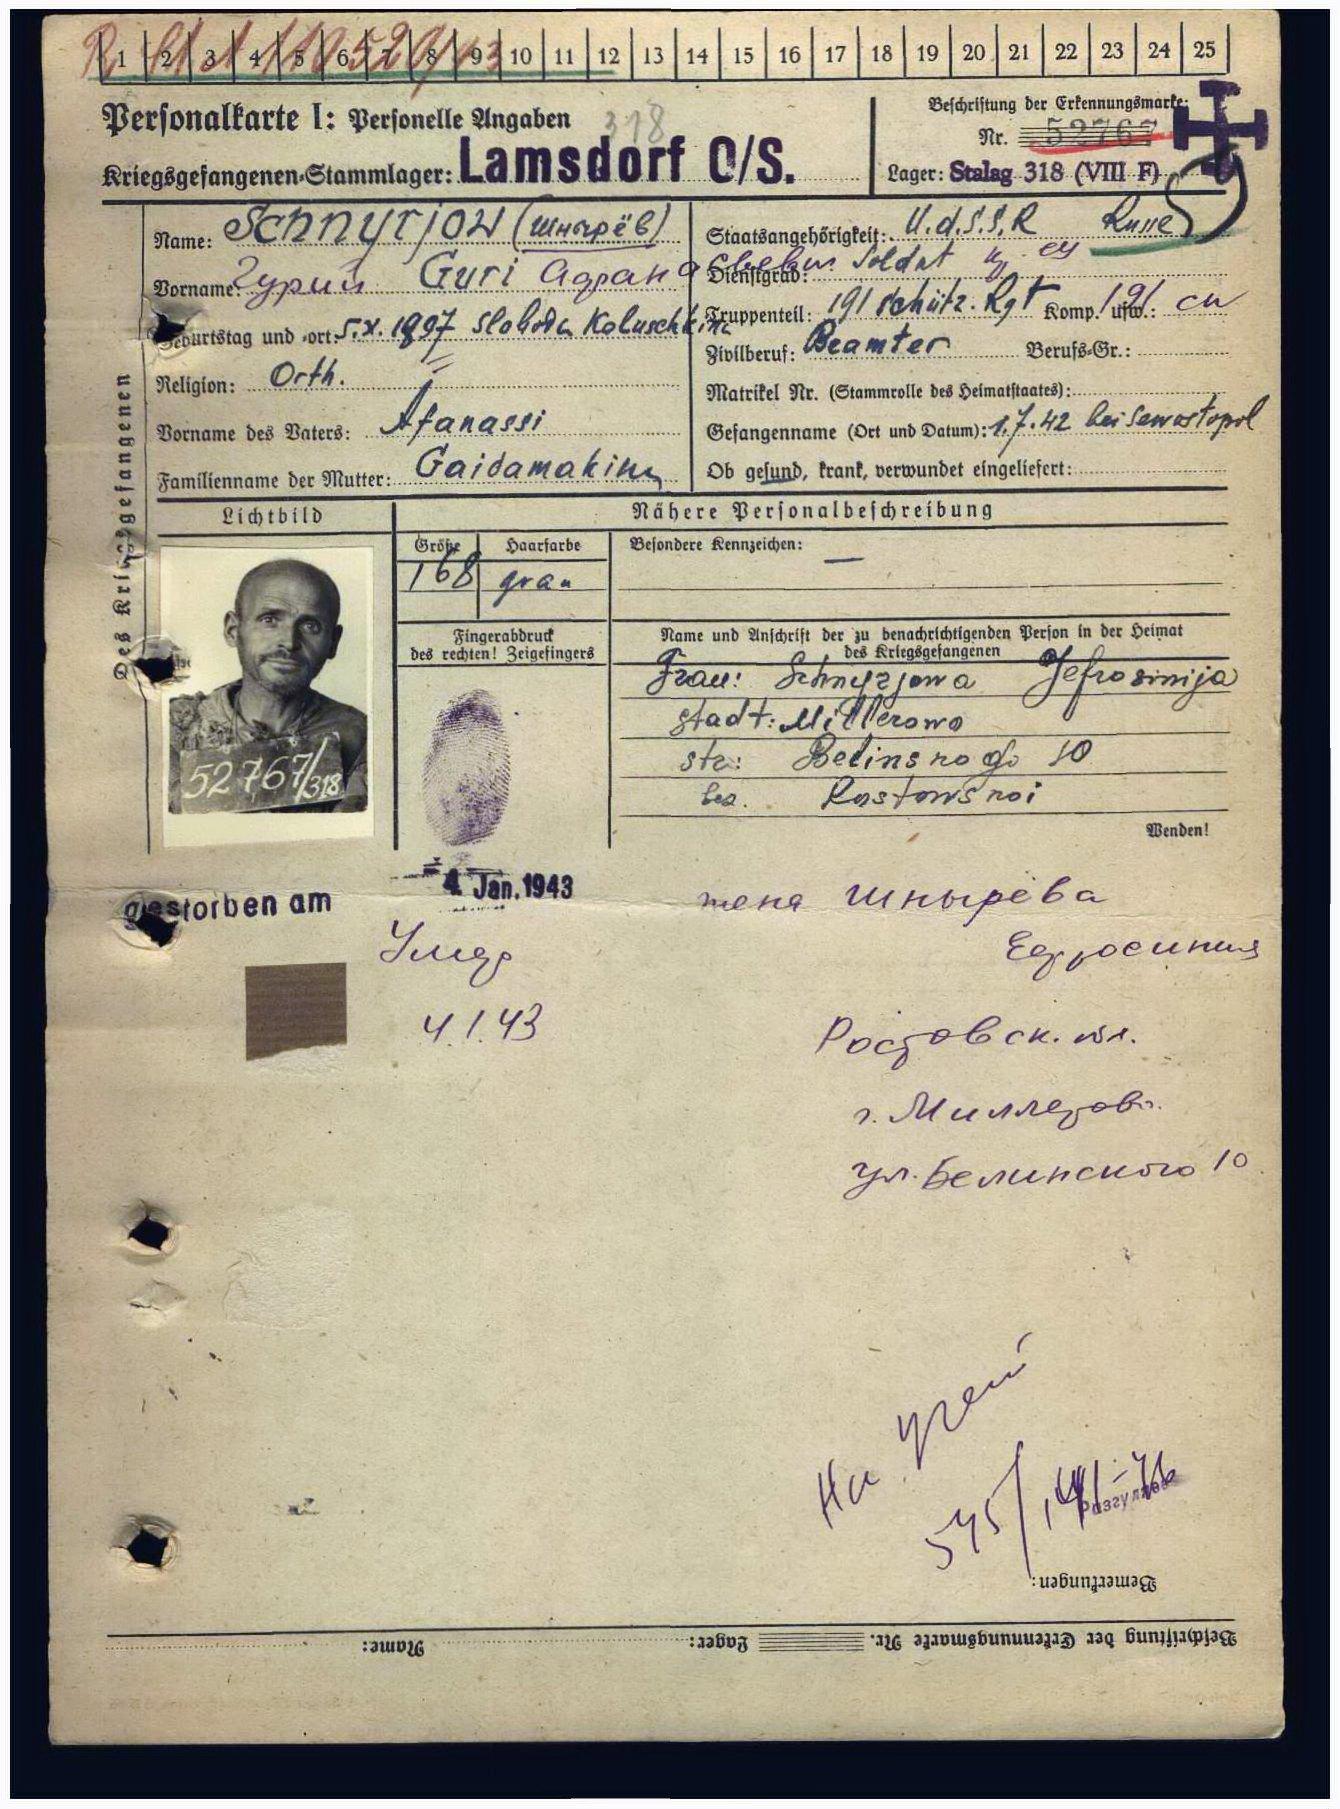 1 2 3 4 5 6 7 8 9 10 11 12 13 14 15 16 17 18 19 20 21 22 23 24 25
Personalkarte I: Personelle Angaben
318
Beschriftung der Erkennungsmarke:
Nr. 52767
Kriegsgefangenen-Stammlager: Lamsdorf O/S.
Lager: Stalag 318 (VIII F)
Des Kriegsgefangenen
Name: Schnyrjow (Шнырёв)
Vorname: Гурий Guri
Geburtstag und -ort: 5.X.1897 Sloboda
Religion: Orth.
Vorname des Vaters: Afanassi
Familienname der Mutter: Gaidamakina
Staatsangehörigkeit: U.d.S.S.R Russe
Dienstgrad: Soldat
Truppenteil: 191 Schütz. Rgt Komp. usw.: 191 сп
Zivilberuf: Beamter Berufs-Gr.:
Matrikel Nr. (Stammrolle des Heimatstaates):
Gefangenname (Ort und Datum): 1.7.42 bei Sewastopol
Ob gesund, krank, verwundet eingeliefert:
Lichtbild
Nähere Personalbeschreibung
Größe
Haarfarbe
Besondere Kennzeichen:
168
grau
—
Fingerabdruck
des rechten! Zeigefingers
Name und Anschrift der zu benachrichtigenden Person in der Heimat
des Kriegsgefangenen
Frau: Schnyrjowa Jefrosinija
stadt: Millerowo
str: Belinskogo 10
bez. Rostowskoi
Wenden!
52767/318
gestorben am
4. Jan. 1943
Умер
4.1.43
жена Шнырева
Ефросиния
Ростовск. обл.
г. Миллерово
ул. Белинского 10
На
Bemerkungen:
Beschriftung der Erkennungsmarke Nr.
Lager:
Name: